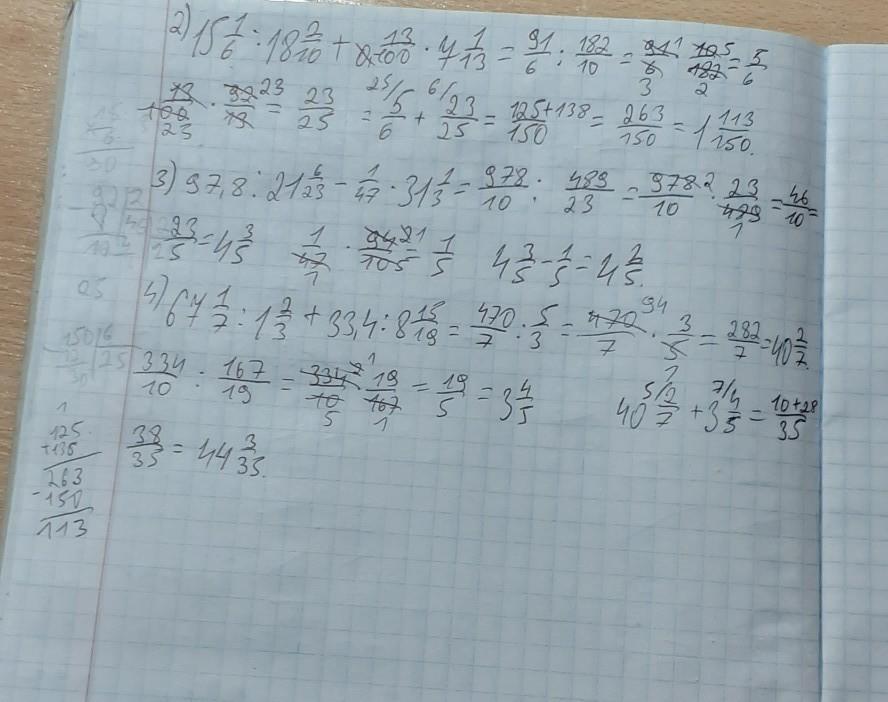 2) 15 1/6 : 18 2/10 + 0 13/100 · 7 1/13 = 91/6 : 182/10 = 91/6 · 10/182 = 5/6
13/100 · 92/13 = 23/25 = 5/6 + 23/25 = 125+138/150 = 263/150 = 1 113/150.
3) 97,8 : 21 6/23 - 1/47 · 31 1/3 = 978/10 : 489/23 = 978/10 · 23/489 = 46/10 =
23/5 = 4 3/5 1/47 · 94/10 = 1/5 4 3/5 - 1/5 = 4 2/5.
4) 67 1/7 : 1 2/3 + 33,4 : 8 15/19 = 470/7 : 5/3 = 470/7 · 3/5 = 282/7 = 40 2/7.
334/10 : 167/19 = 334/10 · 19/167 = 19/5 = 3 4/5 40 2/7 + 3 4/5 = 10+28/35
38/35 = 44 3/35.
1
125
+138
263
-150
113